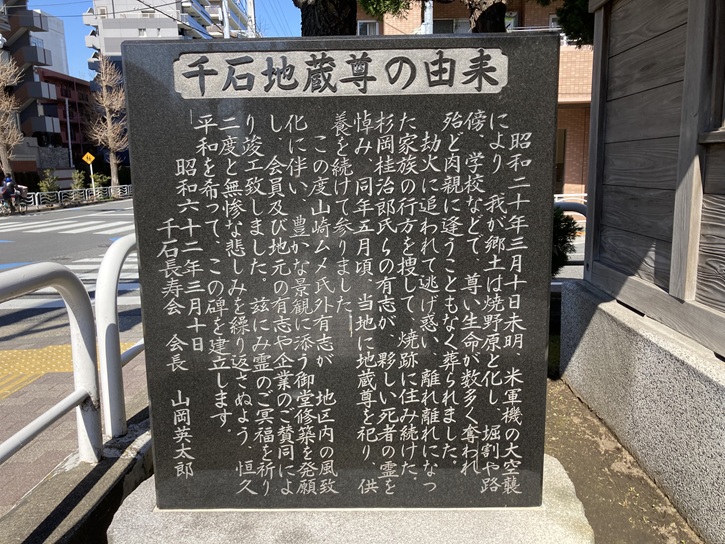 千石地蔵尊の由来
昭和二十年三月十日未明、米軍機の大空襲
により、我が郷土は焼野原と化し、堀割や路
傍、学校などで、尊い生命が数多く奪われ
殆ど肉親に逢うこともなく葬られました。
劫火に追われて逃げ惑い、離れ離れになっ
た家族の行方を捜して、焼跡に住み続けた、
杉岡桂治郎氏らの有志が、夥しい死者の霊を
悼み、同年五月頃、当地に地蔵尊を祀り、供
養を続けて参りました。
この度山崎ムメ氏外有志が、地区内の風致
化に伴い、豊かな景観に添う御堂修築を発願
し、会員及び地元の有志や企業のご賛同によ
り竣工致しました。茲にみ霊のご冥福を祈り
二度と無惨な悲しみを繰り返さぬよう、恒久
平和を希って、この碑を建立します。
昭和六十二年三月十日
千石長寿会 会長 山岡英太郎